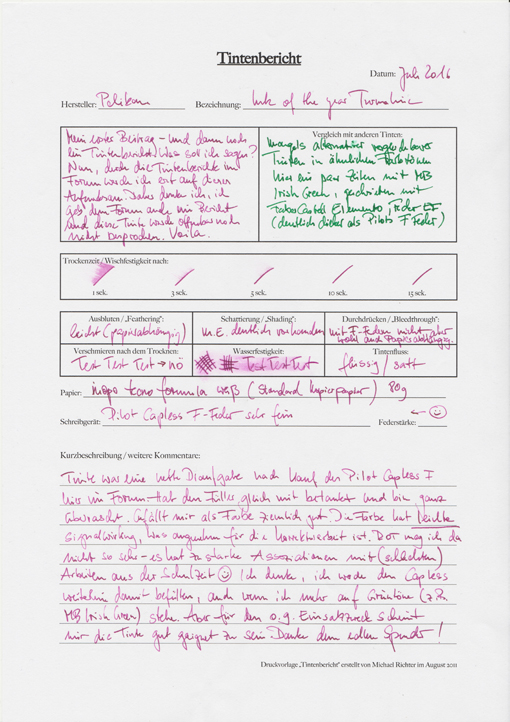 Tintenbericht
Datum: Juli 2016
Hersteller: Pelikan Bezeichnung: Ink of the year Turmaline
Mein erster Beitrag – und dann noch
ein Tintenbericht! Was soll ich sagen?
Nun, durch die Tintenberichte im
Forum wurde ich erst auf diese
aufmerksam. Daher denke ich, ich
geb dem Forum auch ein Bericht
und diese Tinte wurde offenbar noch
nicht besprochen. Voila.
Vergleich mit anderen Tinten:
Mangels alternativer vergleichbarer
Tinten in ähnlichen Farbtönen
hier ein paar Zeilen mit MB
Irish Green, geschrieben mit
Faber Castell Elemento, Feder EF
(deutlich dicker als Pilots F Feder)
Trockenzeit / Wischfestigkeit nach:
1 sek. 3 sek. 5 sek. 10 sek. 15 sek.
Ausbluten / „Feathering": Schattierung / „Shading": Durchdrücken / „Bleedthrough":
leicht (papierabhängig) m.E. deutlich vorhanden mit F-Federn nicht aber
wohl auch Papierabhängig.
Verschmieren nach dem Trocknen: Wasserfestigkeit: Tintenfluss:
Test Test Test → nö Test Test Test flüssig / satt
Papier: inapa tecno formula weiß (Standard Kopierpapier) 80g
Schreibgerät: Pilot Capless F-Feder sehr fein Federstärke: ←
Kurzbeschreibung / weitere Kommentare:
Tinte war eine nette Dreingabe nach Kauf des Pilot Capless F
hier im Forum. Hab den Füller gleich mit betankt und bin ganz
überrascht. Gefällt mir als Farbe ziemlich gut. Die Farbe hat leichte
Signalwirkung, was angenehm für die Korrekturarbeit ist. Dort mag ich das
nicht so sehr – es hat zu starke Assoziationen mit (schlechten)
Arbeiten aus der Schulzeit Ich denke, ich werde den Capless
weiterhin damit befüllen, auch wenn ich mehr auf Grüntöne (z.B.
MB Irish Green) stehe. Aber für den o.g. Einsatzzweck scheint
mir die Tinte gut geeignet zu sein. Danke dem edlen Spender!
Druckvorlage „Tintenbericht" erstellt von Michael Richter im August 2011